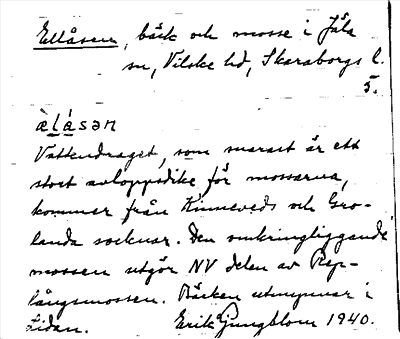 Ellåsen, bäck och mosse i Jäla
sn, Vilske hd, Skaraborgs l.
5.
æ̀lásən
Vattendraget, som snarast är ett
stort avloppsdike för mossarna,
kommer från Kinneveds och Gro-
landa socknar. Den omkringliggande
mossen utgör NV delen av Rep-
långsmossen. Bäcken utmynnar i
Lidan. Erik Ljungblom 1940.